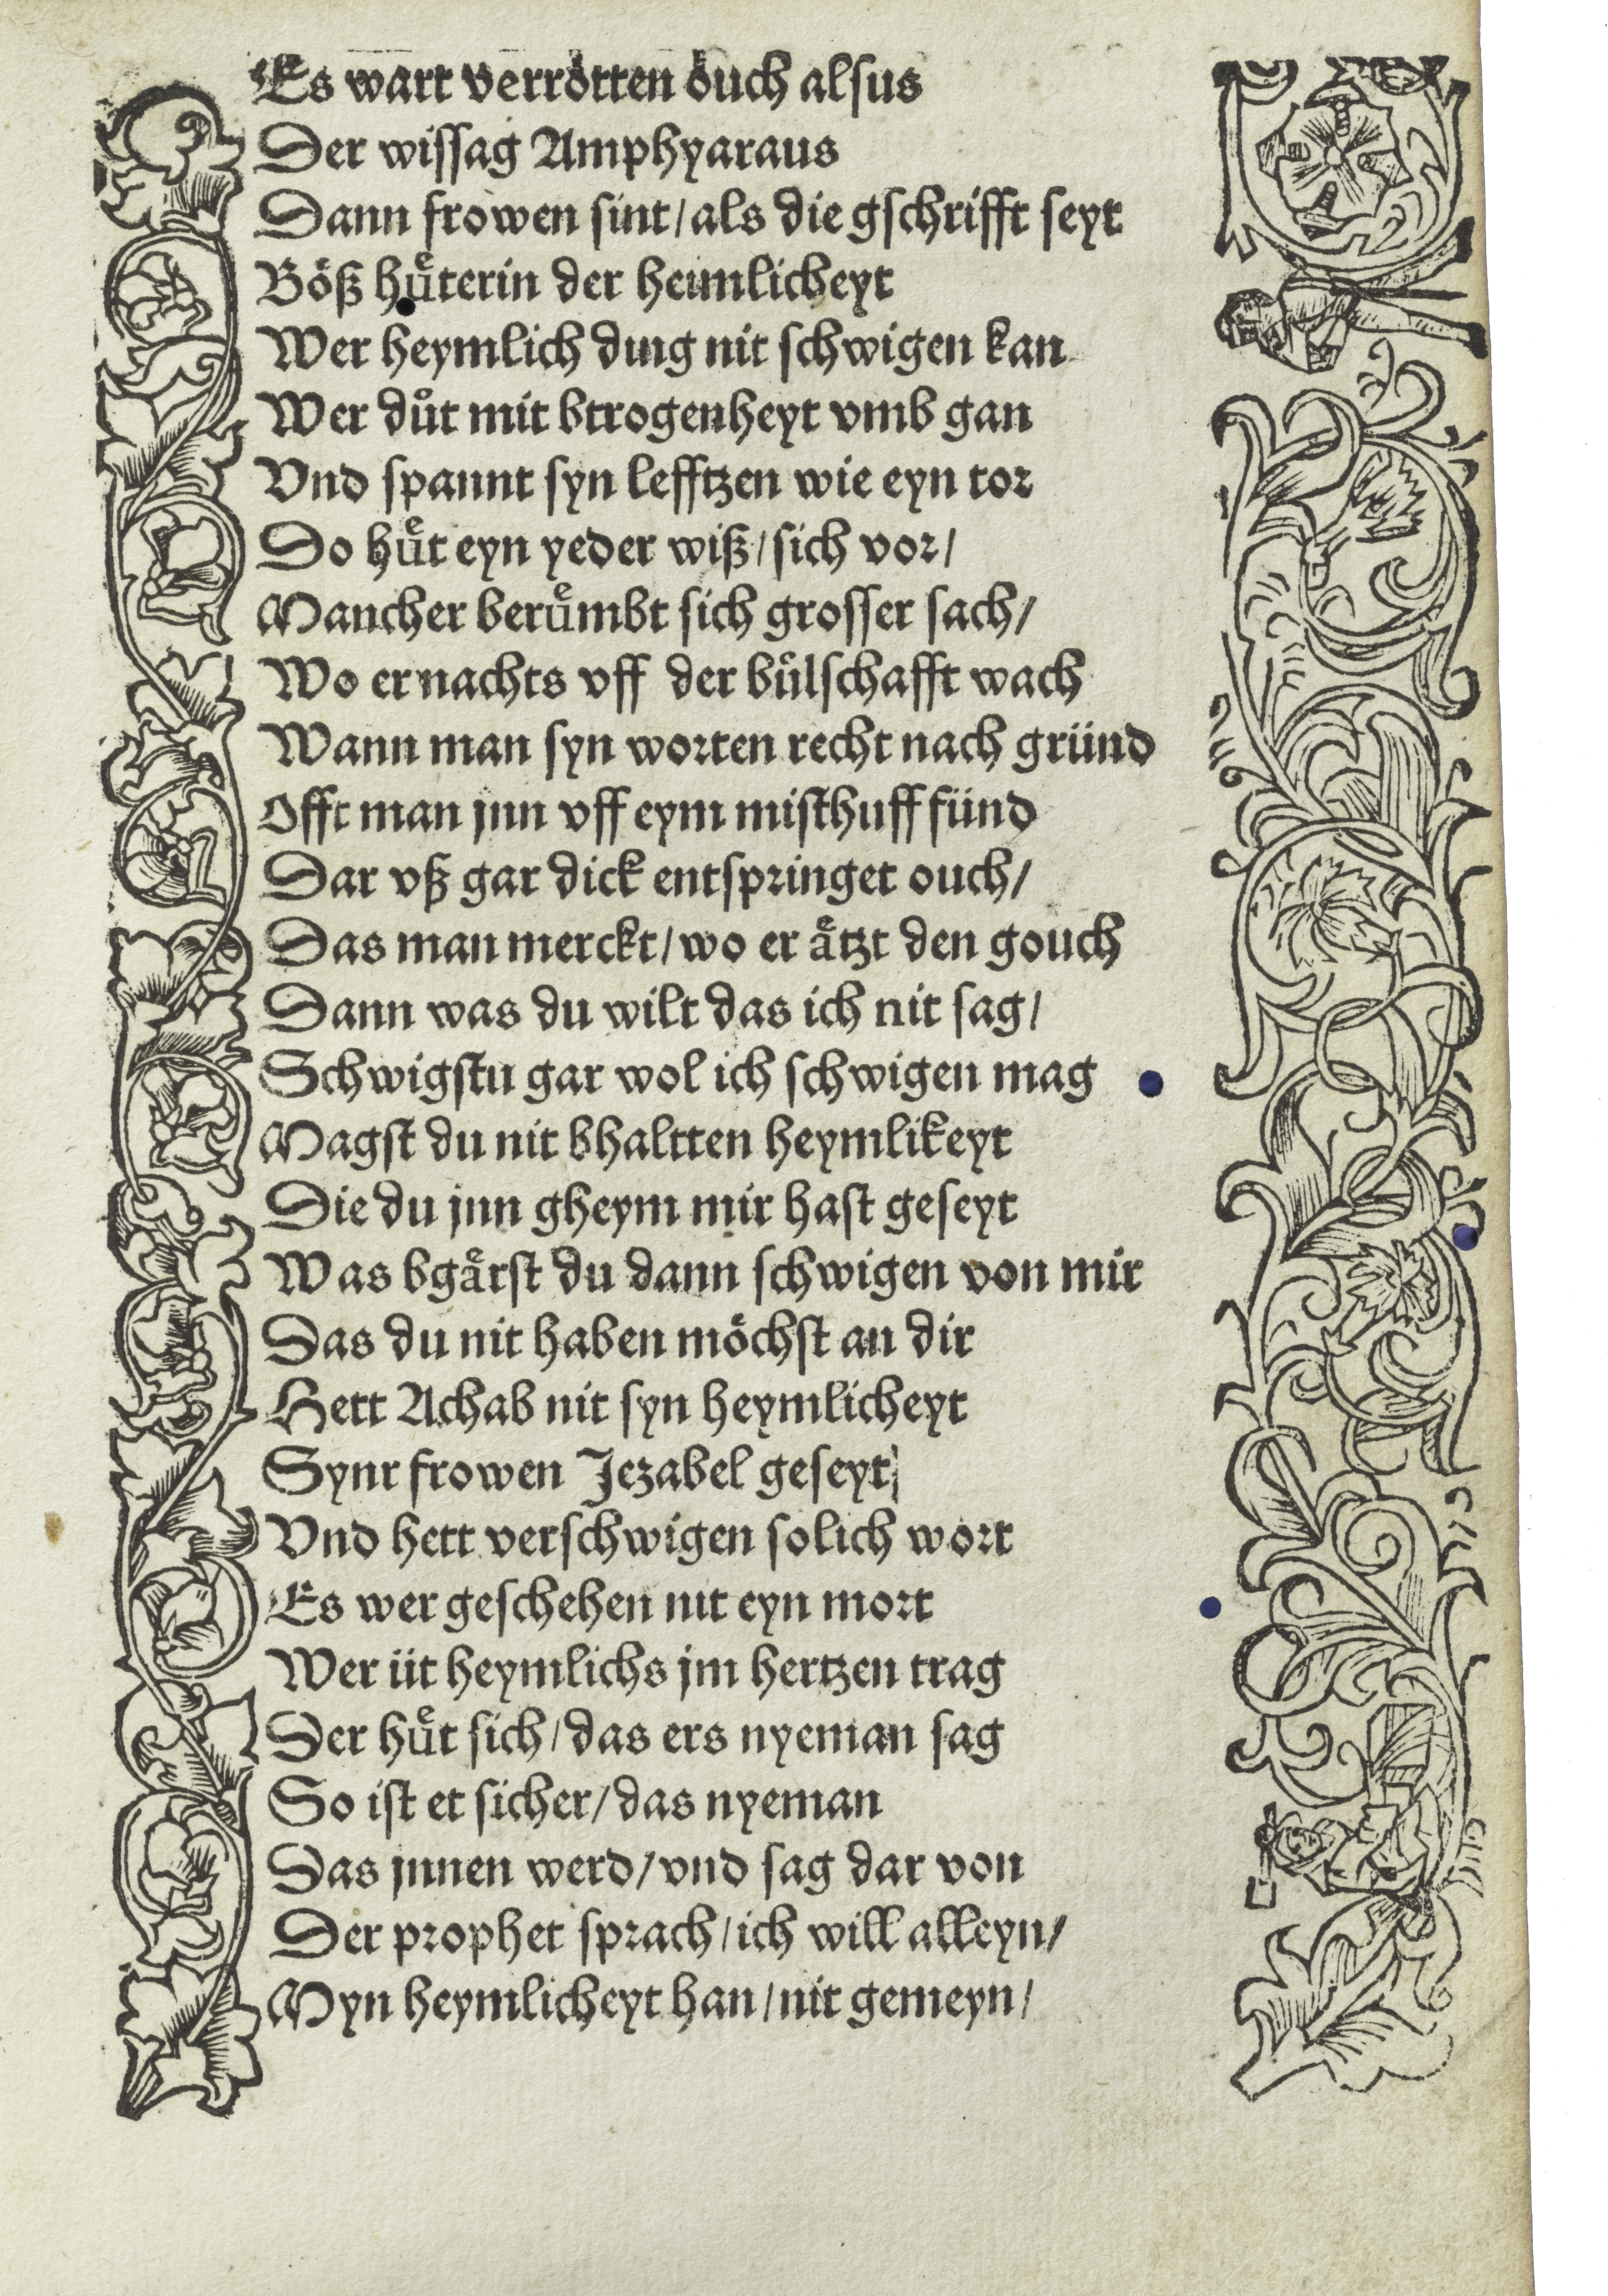 Es wart verrötten öuch alsus
Der wissag Amphyaraus
Dann frowen sint/als die gschrifft seyt
Böß huͤterin der heimlicheyt
Wer heymlich ding nit schwigen kan
Wer duͦt mit btrogenheyt vmb gan
Vnd spannt syn lefftzen wie eyn tor
Do huͤt eyn yeder wiß/sich vor/
Mancher beruͤmbt sich grosser sach/
Wo er nachts vff der buͤlschafft wach
Wann man syn worten recht nach gründ
Offt man jnn vff eym misthuff fünd
Dar vß gar dick entspringet ouch/
Das man merckt/wo er aͤtzt den gouch
Dann was du wilt das ich nit sag/
Schwigstu gar wol ich schwigen mag
Magst du nit bhaltten heymlikeyt
Die du jnn gheym mir hast geseyt
Was bgaͤrst du dann schwigen von mir
Das du nit haben moͤchst an dir
Hett Achab nit syn heymlicheyt
Synr frowen Jezabel geseyt/
Vnd hett verschwigen solich wort
Es wer geschehen nit eyn mort
Wer üt heymlichs jm hertzen trag
Der huͤt sich/das ers nyeman sag
So ist et sicher/das nyeman
Das jnnen werd/vnd sag dar von
Der prophet sprach/ich will alleyn/
Myn heymlicheyt han/nit gemeyn/